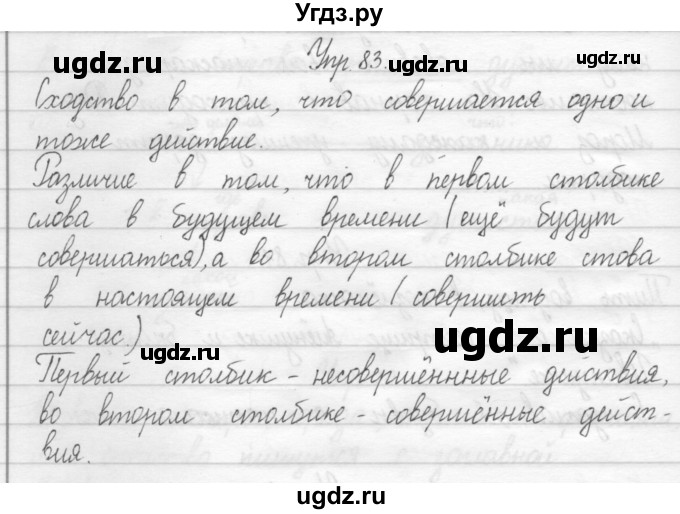 Угдз.ру
ugdz.ru ugdz.ru
Упр 83.
Сходство в том, что совершается одно и
тоже действие.
ugdz.ru ugdz.ru
Различие в том, что в первом столбике
слова в будущем времени (ещё будут
совершаться), а во втором столбике стова
в настоящем времени (совершить
сейчас.)
ugdz.ru ugdz.ru
Первый столбик - несовершённные действия,
во втором столбике - совершённые дейст-
вия.
ugdz.ru ugdz.ru
ugdz.ru